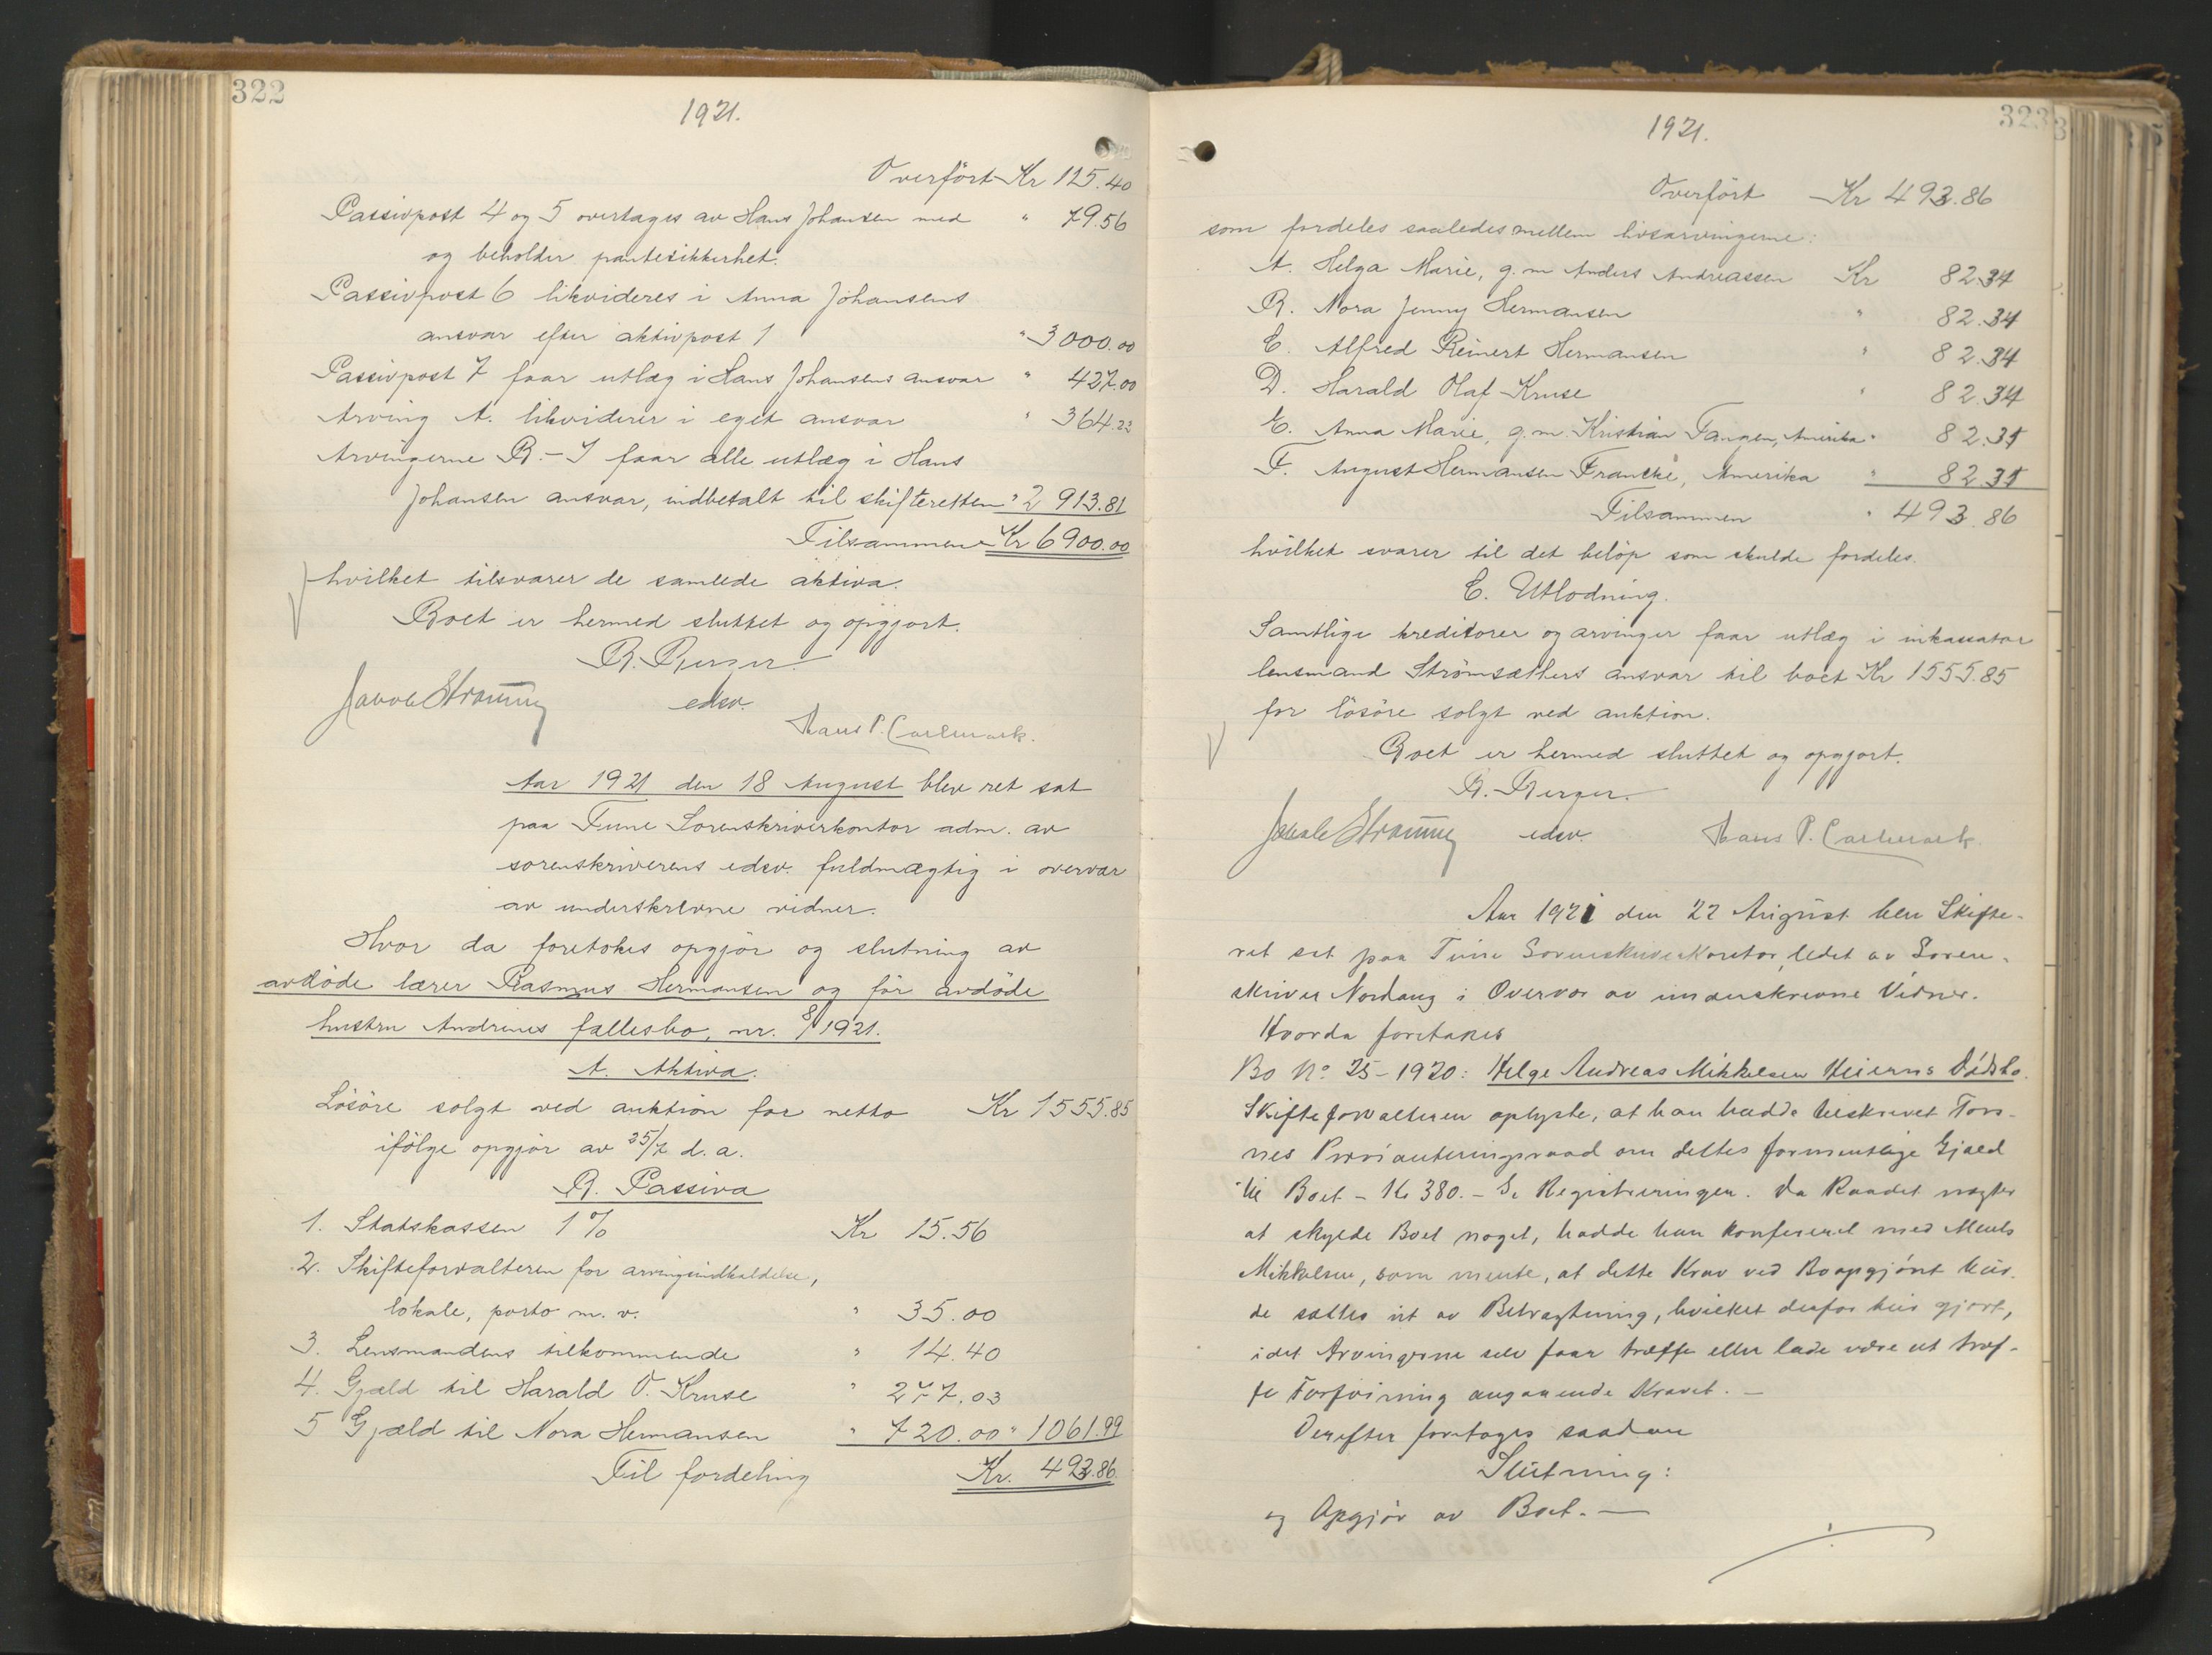 322
1921.
Overført Kr 125.40
Passivpost 4 og 5 overtages av Hans Johansen med " 79.56
og beholder pantesikkerhet.
Passivpost 6 likvideres i Anna Johansens
ansvar efter aktivpost 1 " 3000.00
Passivpost 7 faar utlæg i Hans Johansens ansvar " 427.00
Arving A. likviderer i eget ansvar " 364.23
Arvingerne B.-J faar alle utlæg i Hans
Johansen ansvar, indbetalt til skifteretten " 2913.81
Tilsammen Kr 6900.00
hvilket tilsvarer de samlede aktiva.
Boet er hermed sluttet og opgjort.
B. Berger
edsv.
Hans P. Carlmark.
Aar 1921 den 18 August blev ret sat
paa Tune Sorenskriverkontor adm. av
sorenskriverens edsv. fuldmægtig i overvær
av underskrevne vidner.
Hvor da foretokes opgjør og slutning av
avdøde lærer Rasmus Hermansen og før avdøde
hustru Andrines fællesbo, nr. 8/1921.
A. Aktiva.
Løsøre solgt ved auktion for netto Kr 1555.85
ifølge opgjør av 25/7 d.a.
B. Passiva
1. Statskassen 1% Kr 15.56
2. Skifteforvalteren for arvingsindkaldelse,
lokale, porto m.v. " 35.00
3. Lensmandens tilkommende " 14.40
4. Gjæld til Harald O. Kruse " 277.03
5 Gjæld til Nora Hermansen " 720.00 " 1061.99
Til fordeling Kr. 493.86
323
1921.
Overført Kr 493.86
som fordeles saaledes mellem livsarvingerne:
A. Helga Marie, g.m Anders Andreassen Kr 82.34
B. Nora Jenny Hermansen " 82.34
C. Alfred Reinert Hermansen " 82.34
D. Harald Olaf Kruse " 82.34
E. Anna Marie, g.m. Kristian Tangen, Amerika " 82.35
F. August Hermansen Francke, Amerika " 82.35
Tilsammen " 493.86
hvilket svarer til det beløp som skulde fordeles.
C. Utlodning.
Samtlige kreditorer og arvinger faar utlæg i inkassator
lensmand Strømsæthers ansvar til boet Kr 1555.85
for løsøre solgt ved auktion.
Boet er hermed sluttet og opgjort.
B. Berger.
edsv.
Hans P. Carlmark.
Aar 1921 den 22 August blev Skifte-
ret sat paa Tune Sorenskriverkontor, ledet av Soren-
skriver Nordang i Overvær av underskrevne Vidner.
Hvorda foretakes
Bo No 25-1920: Helge Andreas Mikkelsen Heierns Dødsbo.
Skifteforvalteren oplyste, at han hadde tilskrevet Tors-
nes Provianteringsraad om dettes formentlige Gjæld
til Boet - Kr 380. - Se Registreringen. Da Raadet nægter
at skylde Boet noget, hadde han konfereret med
Mikkelsen, som mente, at dette Krav ved Boopgjøret bur-
de sættes ut av Betragtning, hvilket derfor blir gjort,
idet Arvingerne selv faar træffe eller lade være at træf-
fe Forføining angaaende Kravet. -
Derefter foretages saadan
Slutning:
og Opgjør av Boet. -